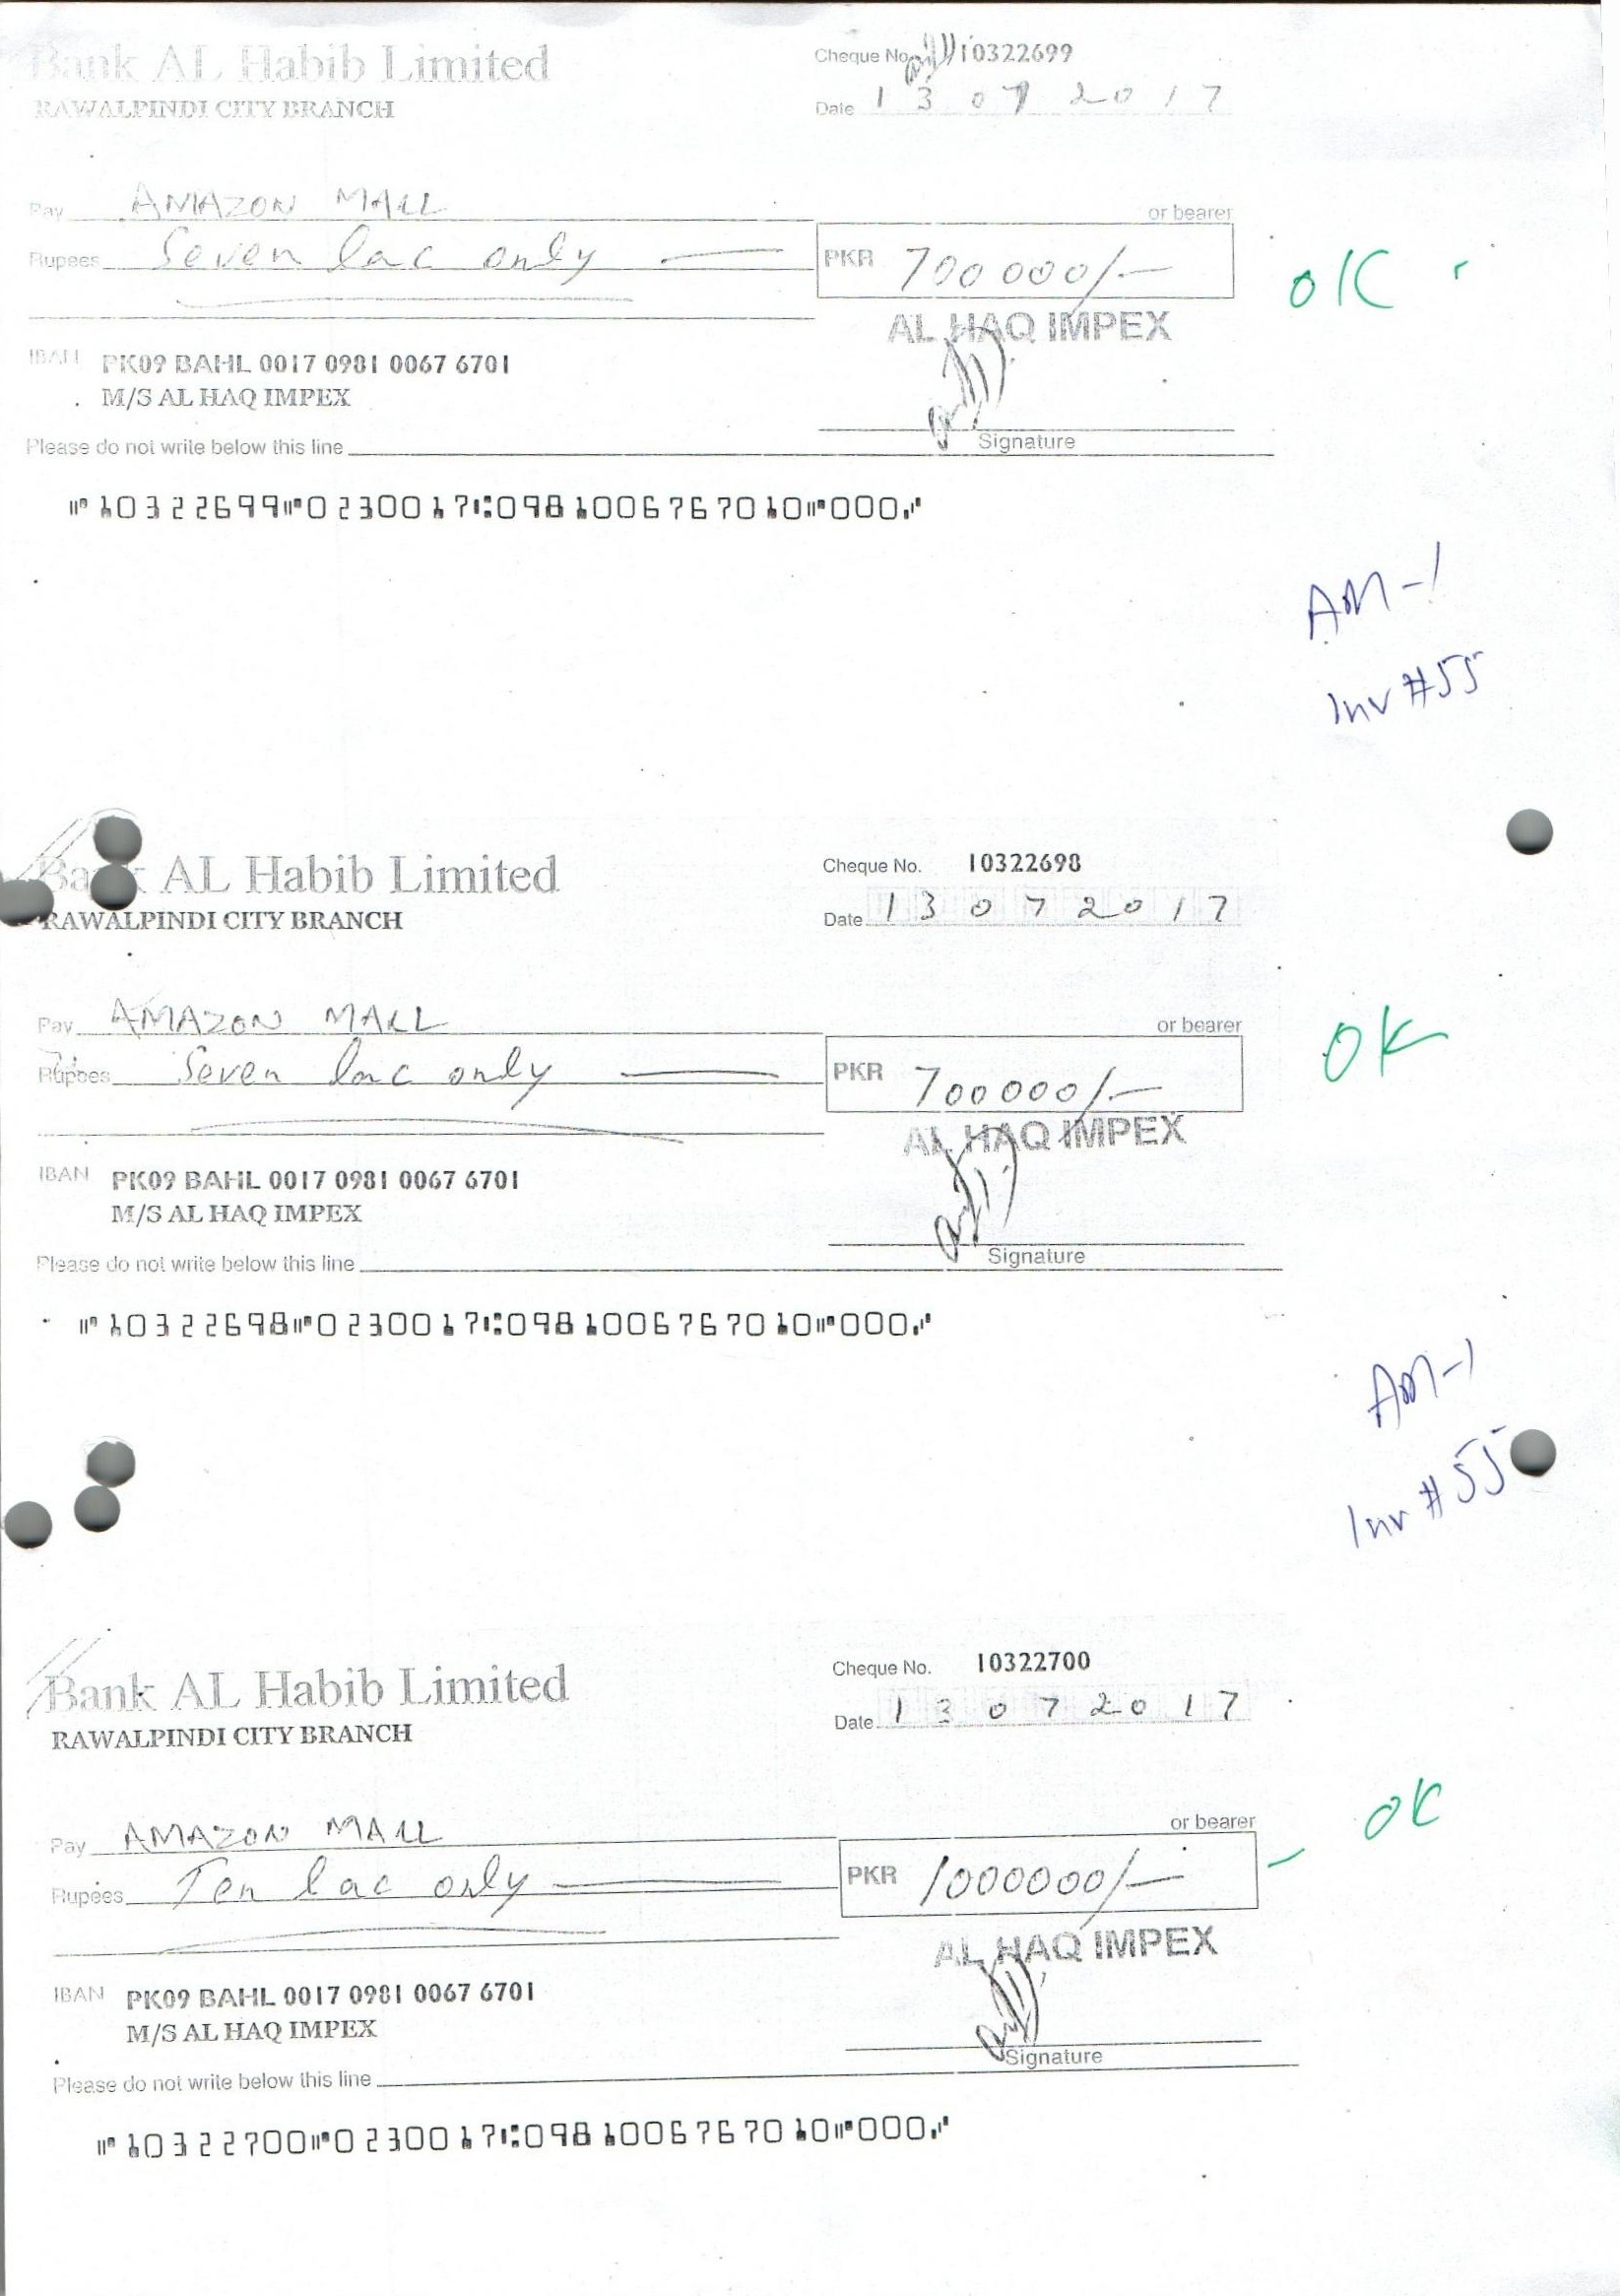 Bank AL Habib Limited
RAWALPINDI CITY BRANCH
Cheque No. 10322699
Date 13 07 2017
Pay AMAZON MALL or bearer
Rupees Seven lac only
PKR 700000/-
AL HAQ IMPEX
OK
IBAN PK09 BAHL 0017 0981 0067 6701
M/S AL HAQ IMPEX
Signature
Please do not write below this line
⑈10322699⑈0230017⑆0981006767010⑈000⑇
AM-1
Inv #55
Bank AL Habib Limited
RAWALPINDI CITY BRANCH
Cheque No. 10322698
Date 13 07 2017
Pay AMAZON MALL or bearer
Rupees Seven lac only
PKR 700000/-
AL HAQ IMPEX
OK
IBAN PK09 BAHL 0017 0981 0067 6701
M/S AL HAQ IMPEX
Signature
Please do not write below this line
⑈10322698⑈0230017⑆0981006767010⑈000⑇
AM-1
Inv #55
Bank AL Habib Limited
RAWALPINDI CITY BRANCH
Cheque No. 10322700
Date 13 07 2017
Pay AMAZON MALL or bearer
Rupees Ten lac only
PKR 1000000/-
AL HAQ IMPEX
OK
IBAN PK09 BAHL 0017 0981 0067 6701
M/S AL HAQ IMPEX
Signature
Please do not write below this line
⑈10322700⑈0230017⑆0981006767010⑈000⑇